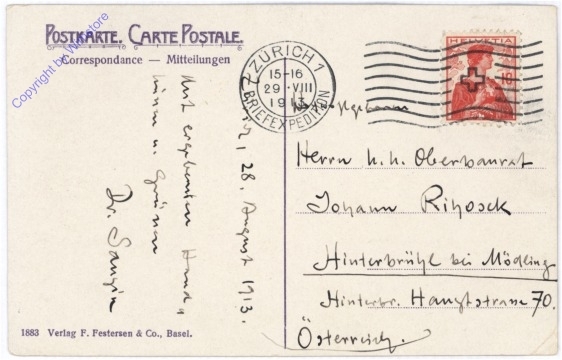 Copyright by
POSTKARTE. CARTE POSTALE.
Correspondance — Mitteilungen
ZÜRICH 1
15-16
29.VIII
1913
BRIEFEXPEDITION
HELVETIA
15
28. August 1913.
Mit ergebensten
u. Grüssen
Dr.
Herrn k. k. Oberbaurat
Johann Rihosek
Hinterbrühl bei Mödling
Hinterbr. Hauptstrasse 70.
Österreich.
1883 Verlag F. Festersen & Co., Basel.